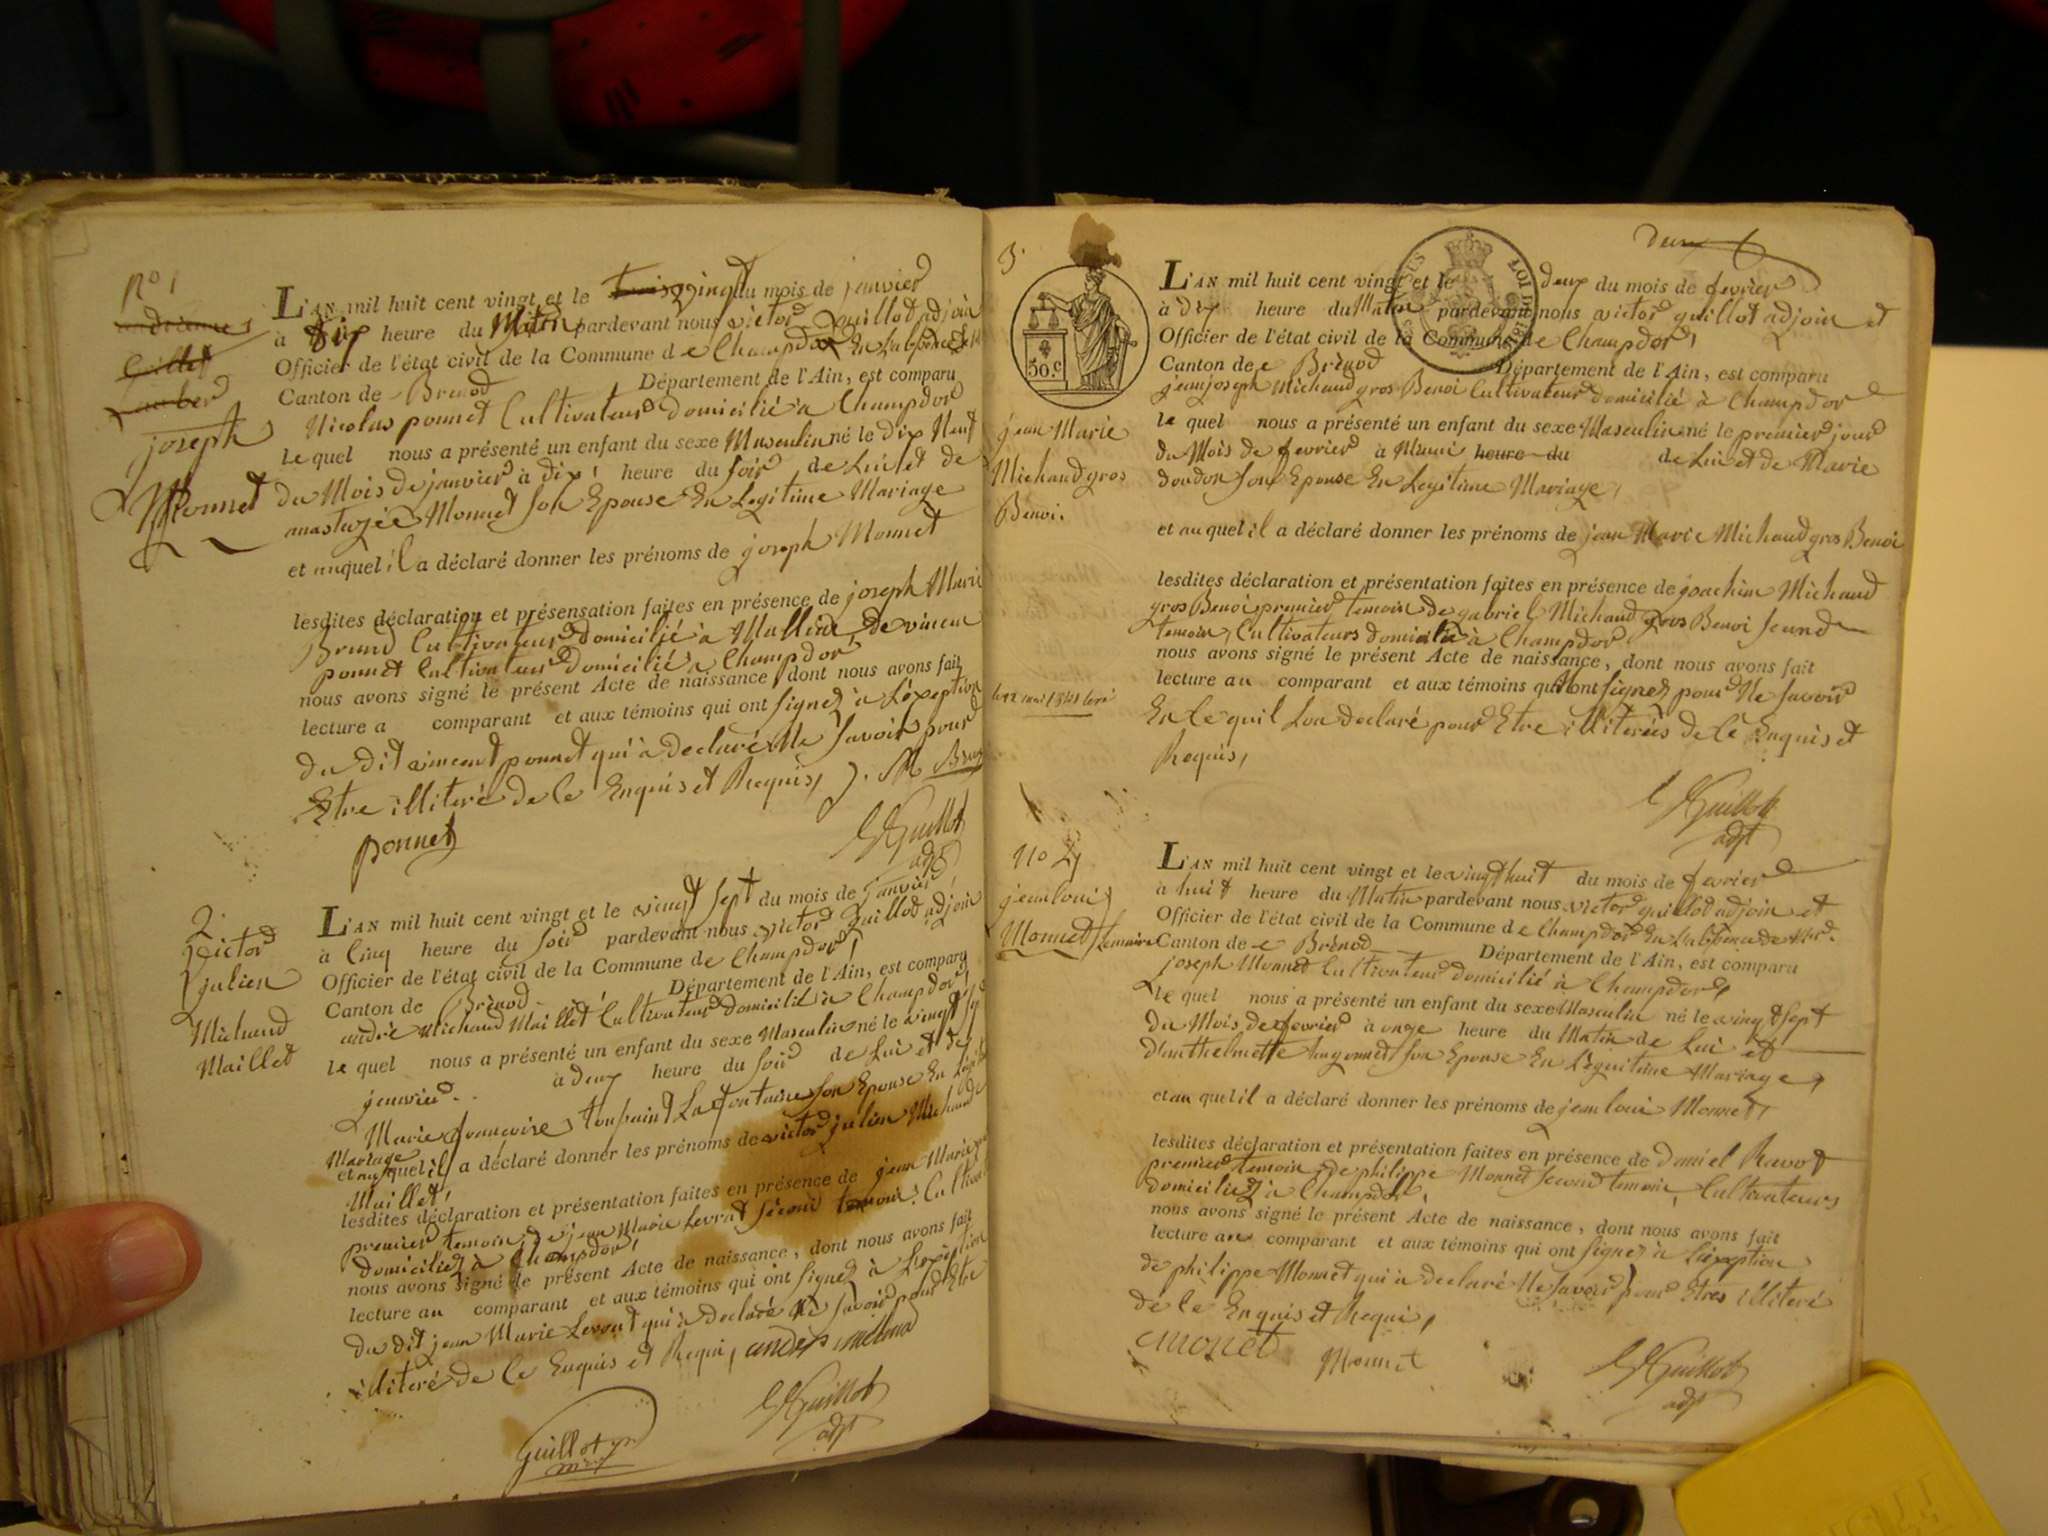 No 1
joseph
Monnet
L'AN mil huit cent vingt et le vingt du mois de janvier
à dix heure du Matin pardevant nous victor guillot adjoin
Officier de l'état civil de la Commune de Champdor En labsence
Canton de Brenod Département de l'Ain, est comparu
Nicolas ponnet Cultivateur domicilié à Champdor
le quel nous a présenté un enfant du sexe Masculin né le dix Neuf
du Mois de janvier à dix heure du soir de Lui et de
anastazée Monnet son Epouse En Legitime Mariage
et auquel il a déclaré donner les prénoms de joseph Monnet
lesdites déclaration et présensation faites en présence de joseph Marie
Brund Cultivateur domicilié à de vincen
ponnet Cultivateur domicilié à Champdor
nous avons signé le présent Acte de naissance, dont nous avons fait
lecture a comparant et aux témoins qui ont signez à Léxeption
du dit vincent ponnet qui à declaré Ne savoir pour
Etre illiteré de ce Enquis et Requis, J. M Brun
ponnet
Guillot
adjt
2.
victor
julien
Michaud
Maillet
L'AN mil huit cent vingt et le vingt sept du mois de janvier
à Cinq heure du soir pardevant nous victor guillot adjoin
Officier de l'état civil de la Commune de Champdor,
Canton de Brenod Département de l'Ain, est comparu
andré Michaud Maillet Cultivateur domicilié à Champdor
le quel nous a présenté un enfant du sexe Masculin né le vingt sep
janvier. à deux heure du soir de Lui et de
Marie françoise toupaint Lafontaine son Epouse En
Mariage
et auquel il a déclaré donner les prénoms de victor julien Michaud
Maillet,
lesdites déclaration et présentation faites en présence de jean Marie
premier temoin, de jean Marie Levrat second temoin, Cultiva
domiciliez à Champdor,
nous avons signé le présent Acte de naissance, dont nous avons fait
lecture au comparant et aux témoins qui ont signez à Lexeption
du dit jean Marie Levrat qui à declaré Ne savoir pour Etre
illiteré de ce Enquis et Requi, andré michaud
Guillot
adjt
Guillot
deux
3.
50.c
LOI DE 1816
jean Marie
Michaud gros
Benoi.
L'AN mil huit cent vingt et le deux du mois de fevrier
à dix heure du Matin pardevant nous victor guillot adjoin et
Officier de l'état civil de la Commune de Champdor,
Canton de Brénod Département de l'Ain, est comparu
jean joseph Michaud gros Benoi Cultivateur domicilié à Champdor
le quel nous a présenté un enfant du sexe Masculin né le premier jour
du Mois de fevrier à Minui heure du de Lui et de Marie
doudon son Epouse En Legitime Mariage,
et au quel il a déclaré donner les prénoms de jean Marie Michaud gros Benoi
lesdites déclaration et présentation faites en présence de joachim Michaud
gros Benoi premier temoin de gabriel Michaud gros Benoi second
temoin, Cultivateurs domicilié à Champdor
nous avons signé le présent Acte de naissance, dont nous avons fait
lecture au comparant et aux témoins qui ont signez pour Ne savoir
En le quil Lon declaré pour Etre illiterées de ce Enquis et
Requis,
Guillot
adjt
No 4
jean loui
Monnet
L'AN mil huit cent vingt et le vingt huit du mois de fevrier
à huit heure du Matin pardevant nous victor guillot adjoin et
Officier de l'état civil de la Commune de Champdor En Labsence de Mr.
Lemaire Canton de Brénod Département de l'Ain, est comparu
joseph Monnet Cultivateur domicilié à Champdor,
le quel nous a présenté un enfant du sexe Masculin né le vingt sept
du Mois de fevrier à onze heure du Matin de Lui et
d'anthelmette son Epouse En Légitime Mariage,
et au quel il a déclaré donner les prénoms de jean loui Monnet,
lesdites déclaration et présentation faites en présence de daniel Ravot
premier temoin, de philippe Monnet second temoin, Cultivateurs
domiciliez à Champdor,
nous avons signé le présent Acte de naissance, dont nous avons fait
lecture au comparant et aux témoins qui ont signez à Léxeption
de philippe Monnet qui à declaré Ne savoir pour Etres illiteré
de ce Enquis et Requi,
monet
Monnet
Guillot
adjt